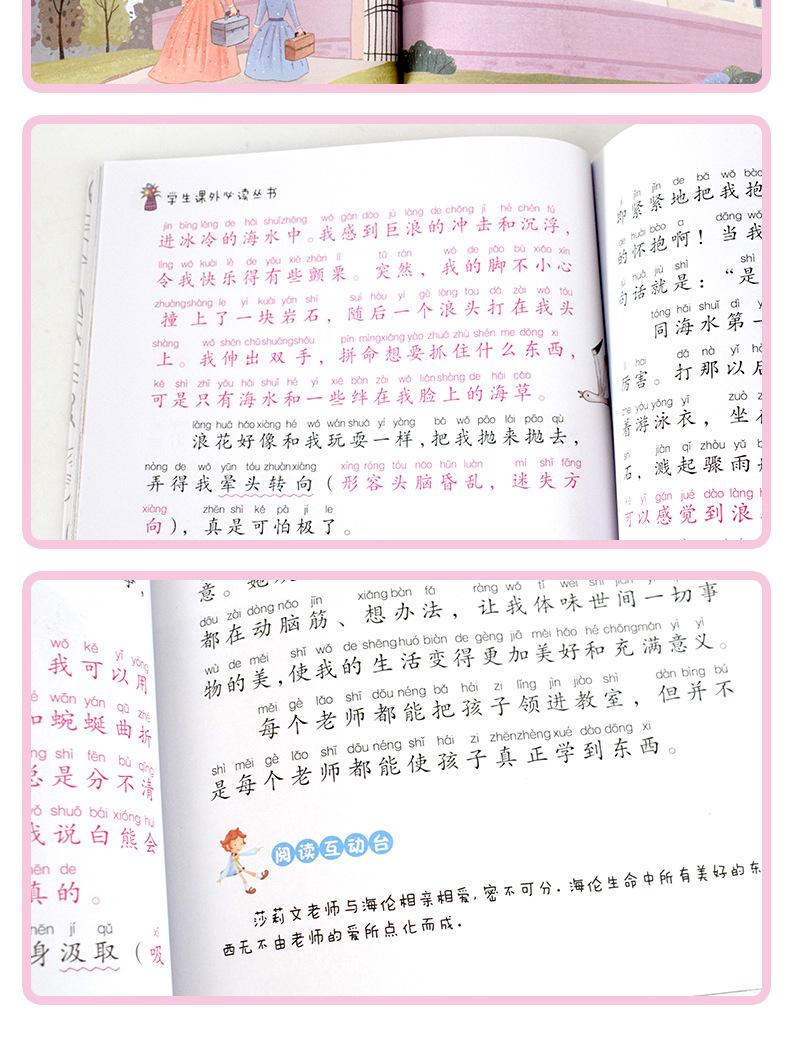 学生课外必读丛书
jìn bīng lěng de hǎi shuǐ zhōng wǒ gǎn dào jù làng de chōng jī hé chén fú
进冰冷的海水中。我感到巨浪的冲击和沉浮，
lìng wǒ kuài lè de yǒu xiē zhàn lì tū rán wǒ de jiǎo bù xiǎo xīn
令我快乐得有些颤栗。突然，我的脚不小心
zhuàng shàng le yí kuài yán shí suí hòu yí gè làng tou dǎ zài wǒ tóu
撞上了一块岩石，随后一个浪头打在我头
shàng wǒ shēn chū shuāng shǒu pīn mìng xiǎng yào zhuā zhù shén me dōng xi
上。我伸出双手，拼命想要抓住什么东西，
kě shì zhǐ yǒu hǎi shuǐ hé yì xiē bàn zài wǒ liǎn shàng de hǎi cǎo
可是只有海水和一些绊在我脸上的海草。
làng huā hǎo xiàng hé wǒ wán shuǎ yí yàng bǎ wǒ pāo lái pāo qù
浪花好像和我玩耍一样，把我抛来抛去，
nòng de wǒ yūn tóu zhuàn xiàng xíng róng tóu nǎo hūn luàn mí shī fāng
弄得我晕头转向（形容头脑昏乱，迷失方
xiàng zhēn shì kě pà jí le
向），真是可怕极了。
jǐn jǐn de bǎ wǒ bào
即紧紧地把我抱
de huái bào a dāng wǒ
的怀抱啊！当我
jù huà jiù shì shì
句话就是：“是
tóng hǎi shuǐ dì yī
同海水第一
lì hai dǎ nà yǐ hòu
厉害。打那以后
zhe yóu yǒng yī zuò zài
着游泳衣，坐在
shí jiàn qǐ zhòu yǔ
石，溅起骤雨
kě yǐ gǎn jué dào làng
可以感觉到浪
意。她
dōu zài dòng nǎo jīn xiǎng bàn fǎ ràng wǒ tǐ wèi shì jiān yí qiè shì
都在动脑筋、想办法，让我体味世间一切事
wù de měi shǐ wǒ de shēng huó biàn de gèng jiā měi hǎo hé chōng mǎn yì yì
物的美，使我的生活变得更加美好和充满意义。
měi gè lǎo shī dōu néng bǎ hái zi lǐng jìn jiào shì dàn bìng bù
每个老师都能把孩子领进教室，但并不
shì měi gè lǎo shī dōu néng shǐ hái zi zhēn zhèng xué dào dōng xi
是每个老师都能使孩子真正学到东西。
阅读互动台
莎莉文老师与海伦相亲相爱，密不可分．海伦生命中所有美好的东
西无不由老师的爱所点化而成．
事，
wǒ kě yǐ yòng
我可以用
wān yán qū zhé
如蜿蜒曲折
shì fēn bù qīng
总是分不清
wǒ shuō bái xióng huì
我说白熊会
zhēn de
真的。
shēn jí qǔ xī
身汲取（吸